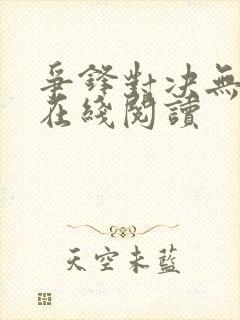 爭鋒對決無
在綫閱讀
天空未藍